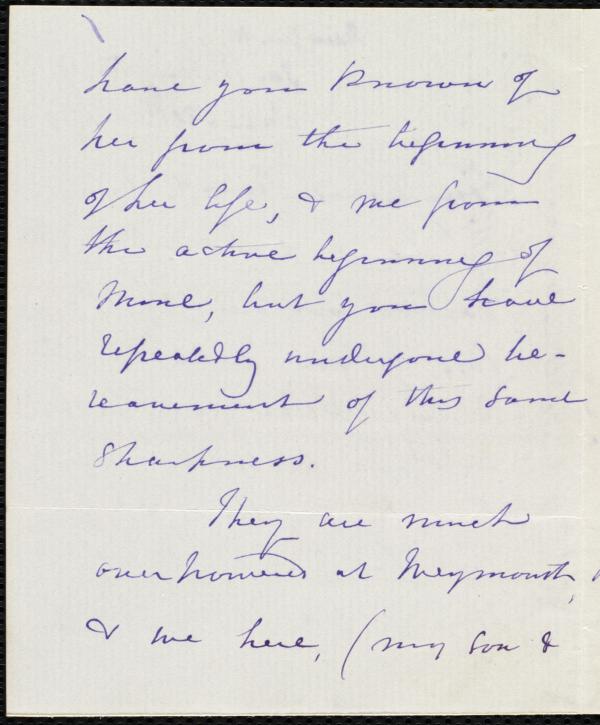 have you known of
her from the beginning
of her life, & me from
the active beginning of
mine, but you have
repeatedly undergone be-
reavement of this same
sharpness.
They are much
overpowered at Weymouth,
& we here, (my son &